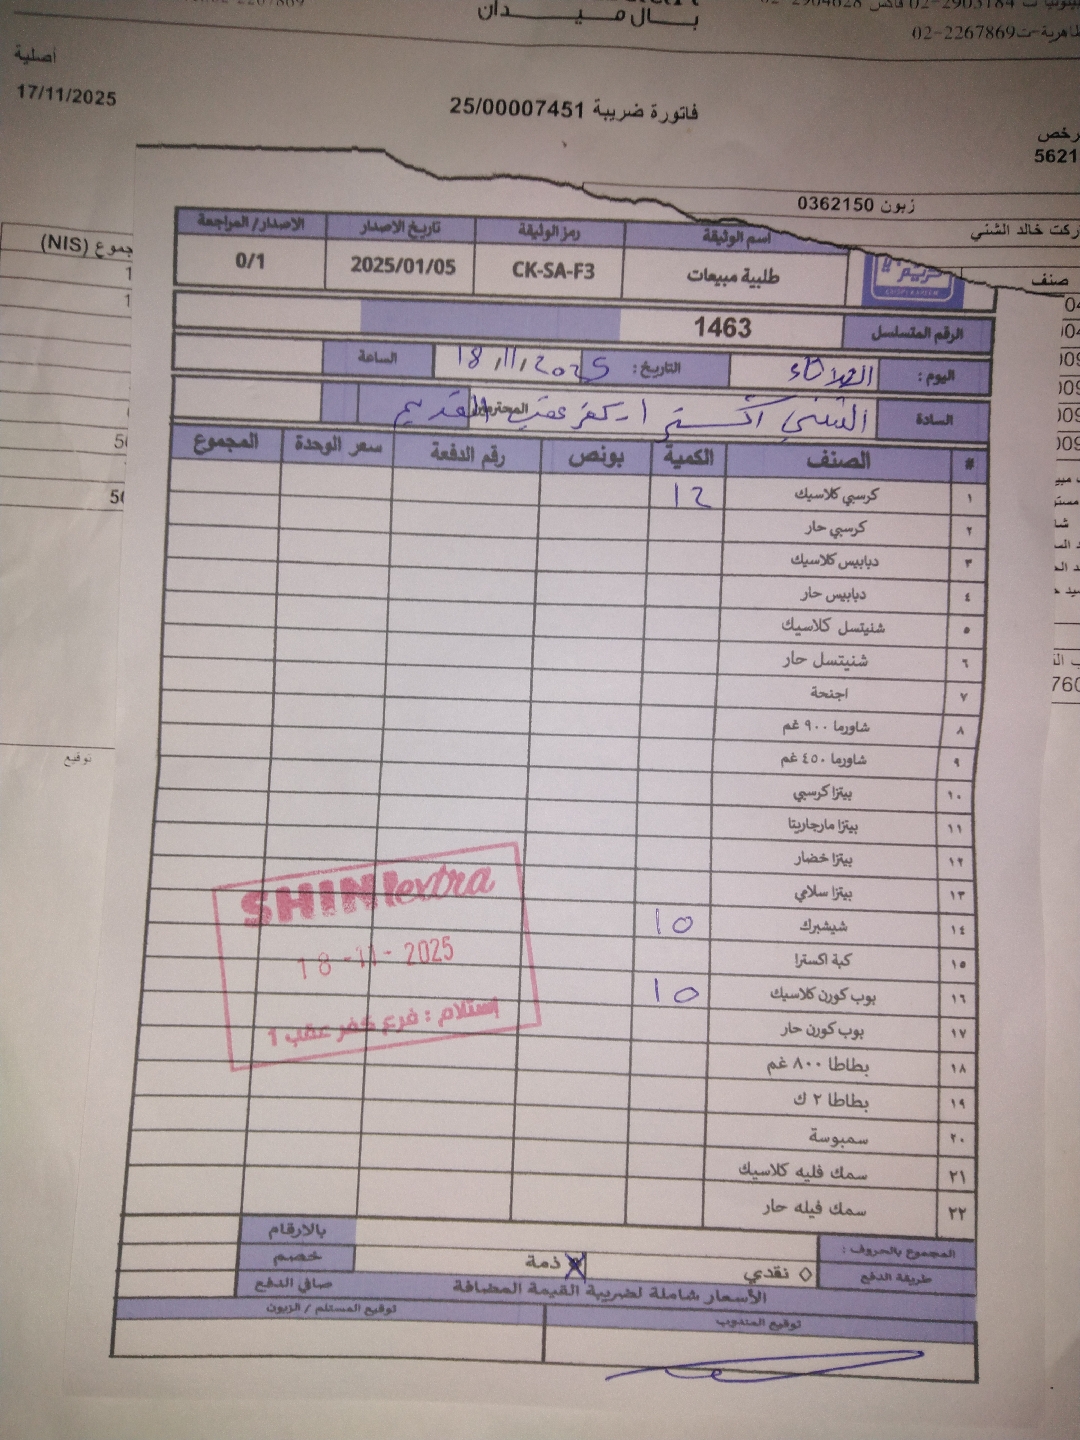 بـــال ميـــدان
02-2267869
أصلية
17/11/2025
فاتورة ضريبة 25/00007451
5621
زبون 0362150
خالد الشني
صنف
(NIS)
اسم الوثيقة رمز الوثيقة تاريخ الاصدار الاصدار/ المراجعة
طلبية مبيعات CK-SA-F3 2025/01/05 0/1
الرقم المتسلسل 1463
اليوم : الثلاثاء التاريخ : 18/11/2025 الساعة
السادة الشني اكسترا / كفر عقب القديم المحترمين
# الصنف الكمية بونص رقم الدفعة سعر الوحدة المجموع
١ كرسبي كلاسيك 12
٢ كرسبي حار
٣ دبابيس كلاسيك
٤ دبابيس حار
٥ شنيتسل كلاسيك
٦ شنيتسل حار
٧ اجنحة
٨ شاورما ٩٠٠ غم
٩ شاورما ٤٥٠ غم
١٠ بيتزا كرسبي
١١ بيتزا مارجاريتا
١٢ بيتزا خضار
١٣ بيتزا سلامي
١٤ شيشبرك 10
١٥ كبة اكسترا
١٦ بوب كورن كلاسيك 10
١٧ بوب كورن حار
١٨ بطاطا ٨٠٠ غم
١٩ بطاطا ٢ ك
٢٠ سمبوسة
٢١ سمك فليه كلاسيك
٢٢ سمك فيله حار
SHINI extra
18-11-2025
إستلام : فرع كفر عقب 1
المجموع بالحروف : بالارقام
طريقة الدفع ◊ نقدي ذمة خصم
الأسعار شاملة لضريبة القيمة المضافة صافي الدفع
توقيع المندوب توقيع المستلم / الزبون
توقيع